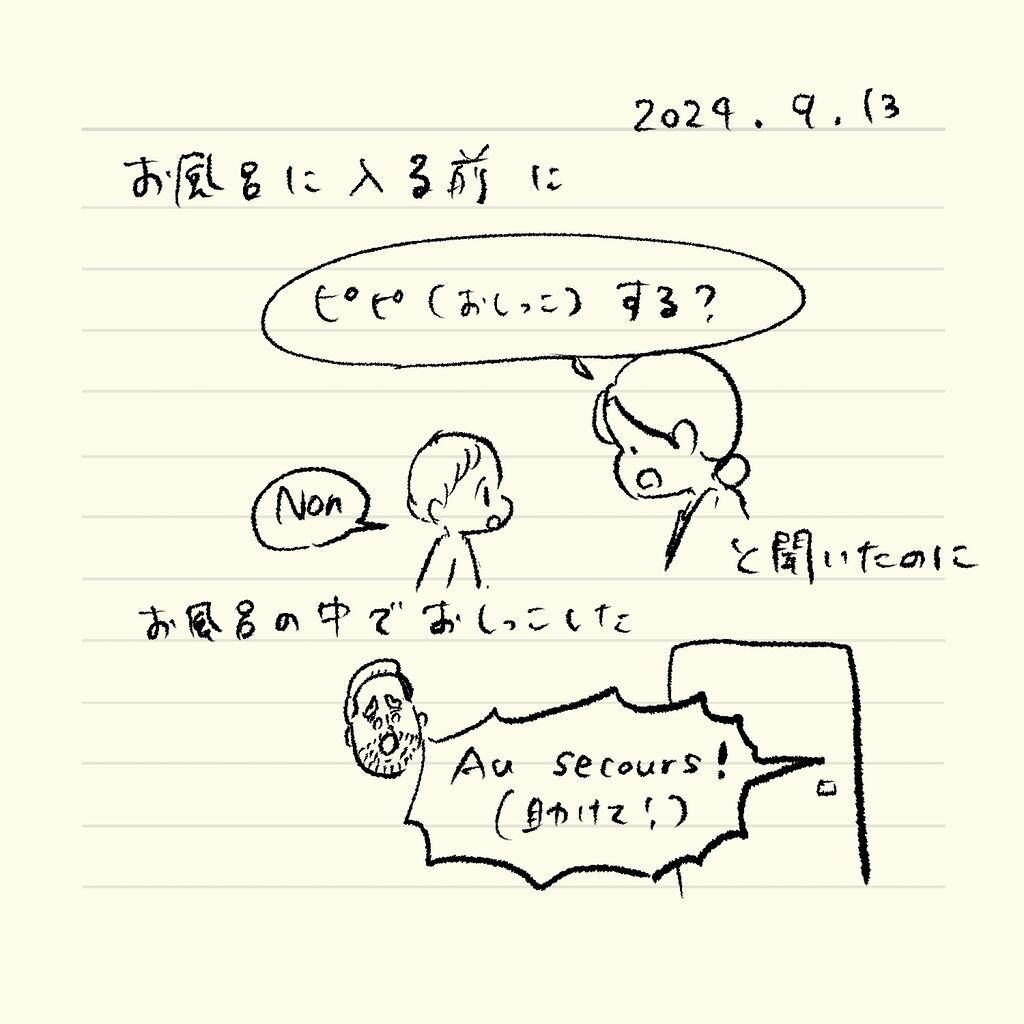 2024.9.13
お風呂に入る前に
ピピ(おしっこ)する?
Non
と聞いたのに
お風呂の中でおしっこした
Au secours!
(助けて!)